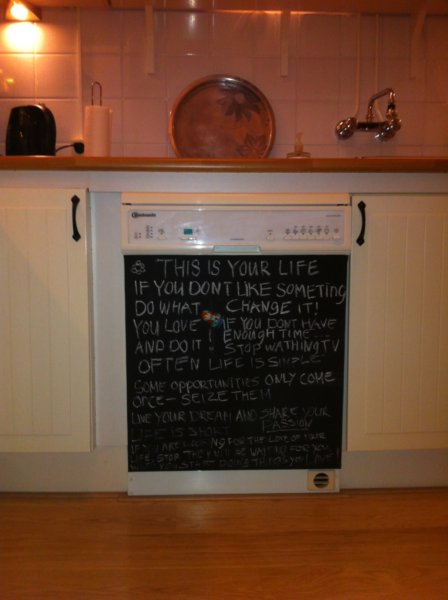 Bauknecht
THIS IS YOUR LIFE
IF YOU DONT LIKE SOMETING
DO WHAT CHANGE IT!
YOU LOVE IF YOU DONT HAVE
ENOUGH TIME
AND DO IT! STOP WATHING TV
OFTEN LIFE IS SIMPLE
SOME OPPORTUNITIES ONLY COME
ONCE - SEIZE THEM
LIVE YOUR DREAM AND SHARE YOUR
PASSION
LIFE IS SHORT
IF YOU ARE LOOKING FOR THE LOVE OF YOUR
LIFE, STOP. THEY WILL BE WAITING FOR YOU
START DOING THINGS YOU LOVE